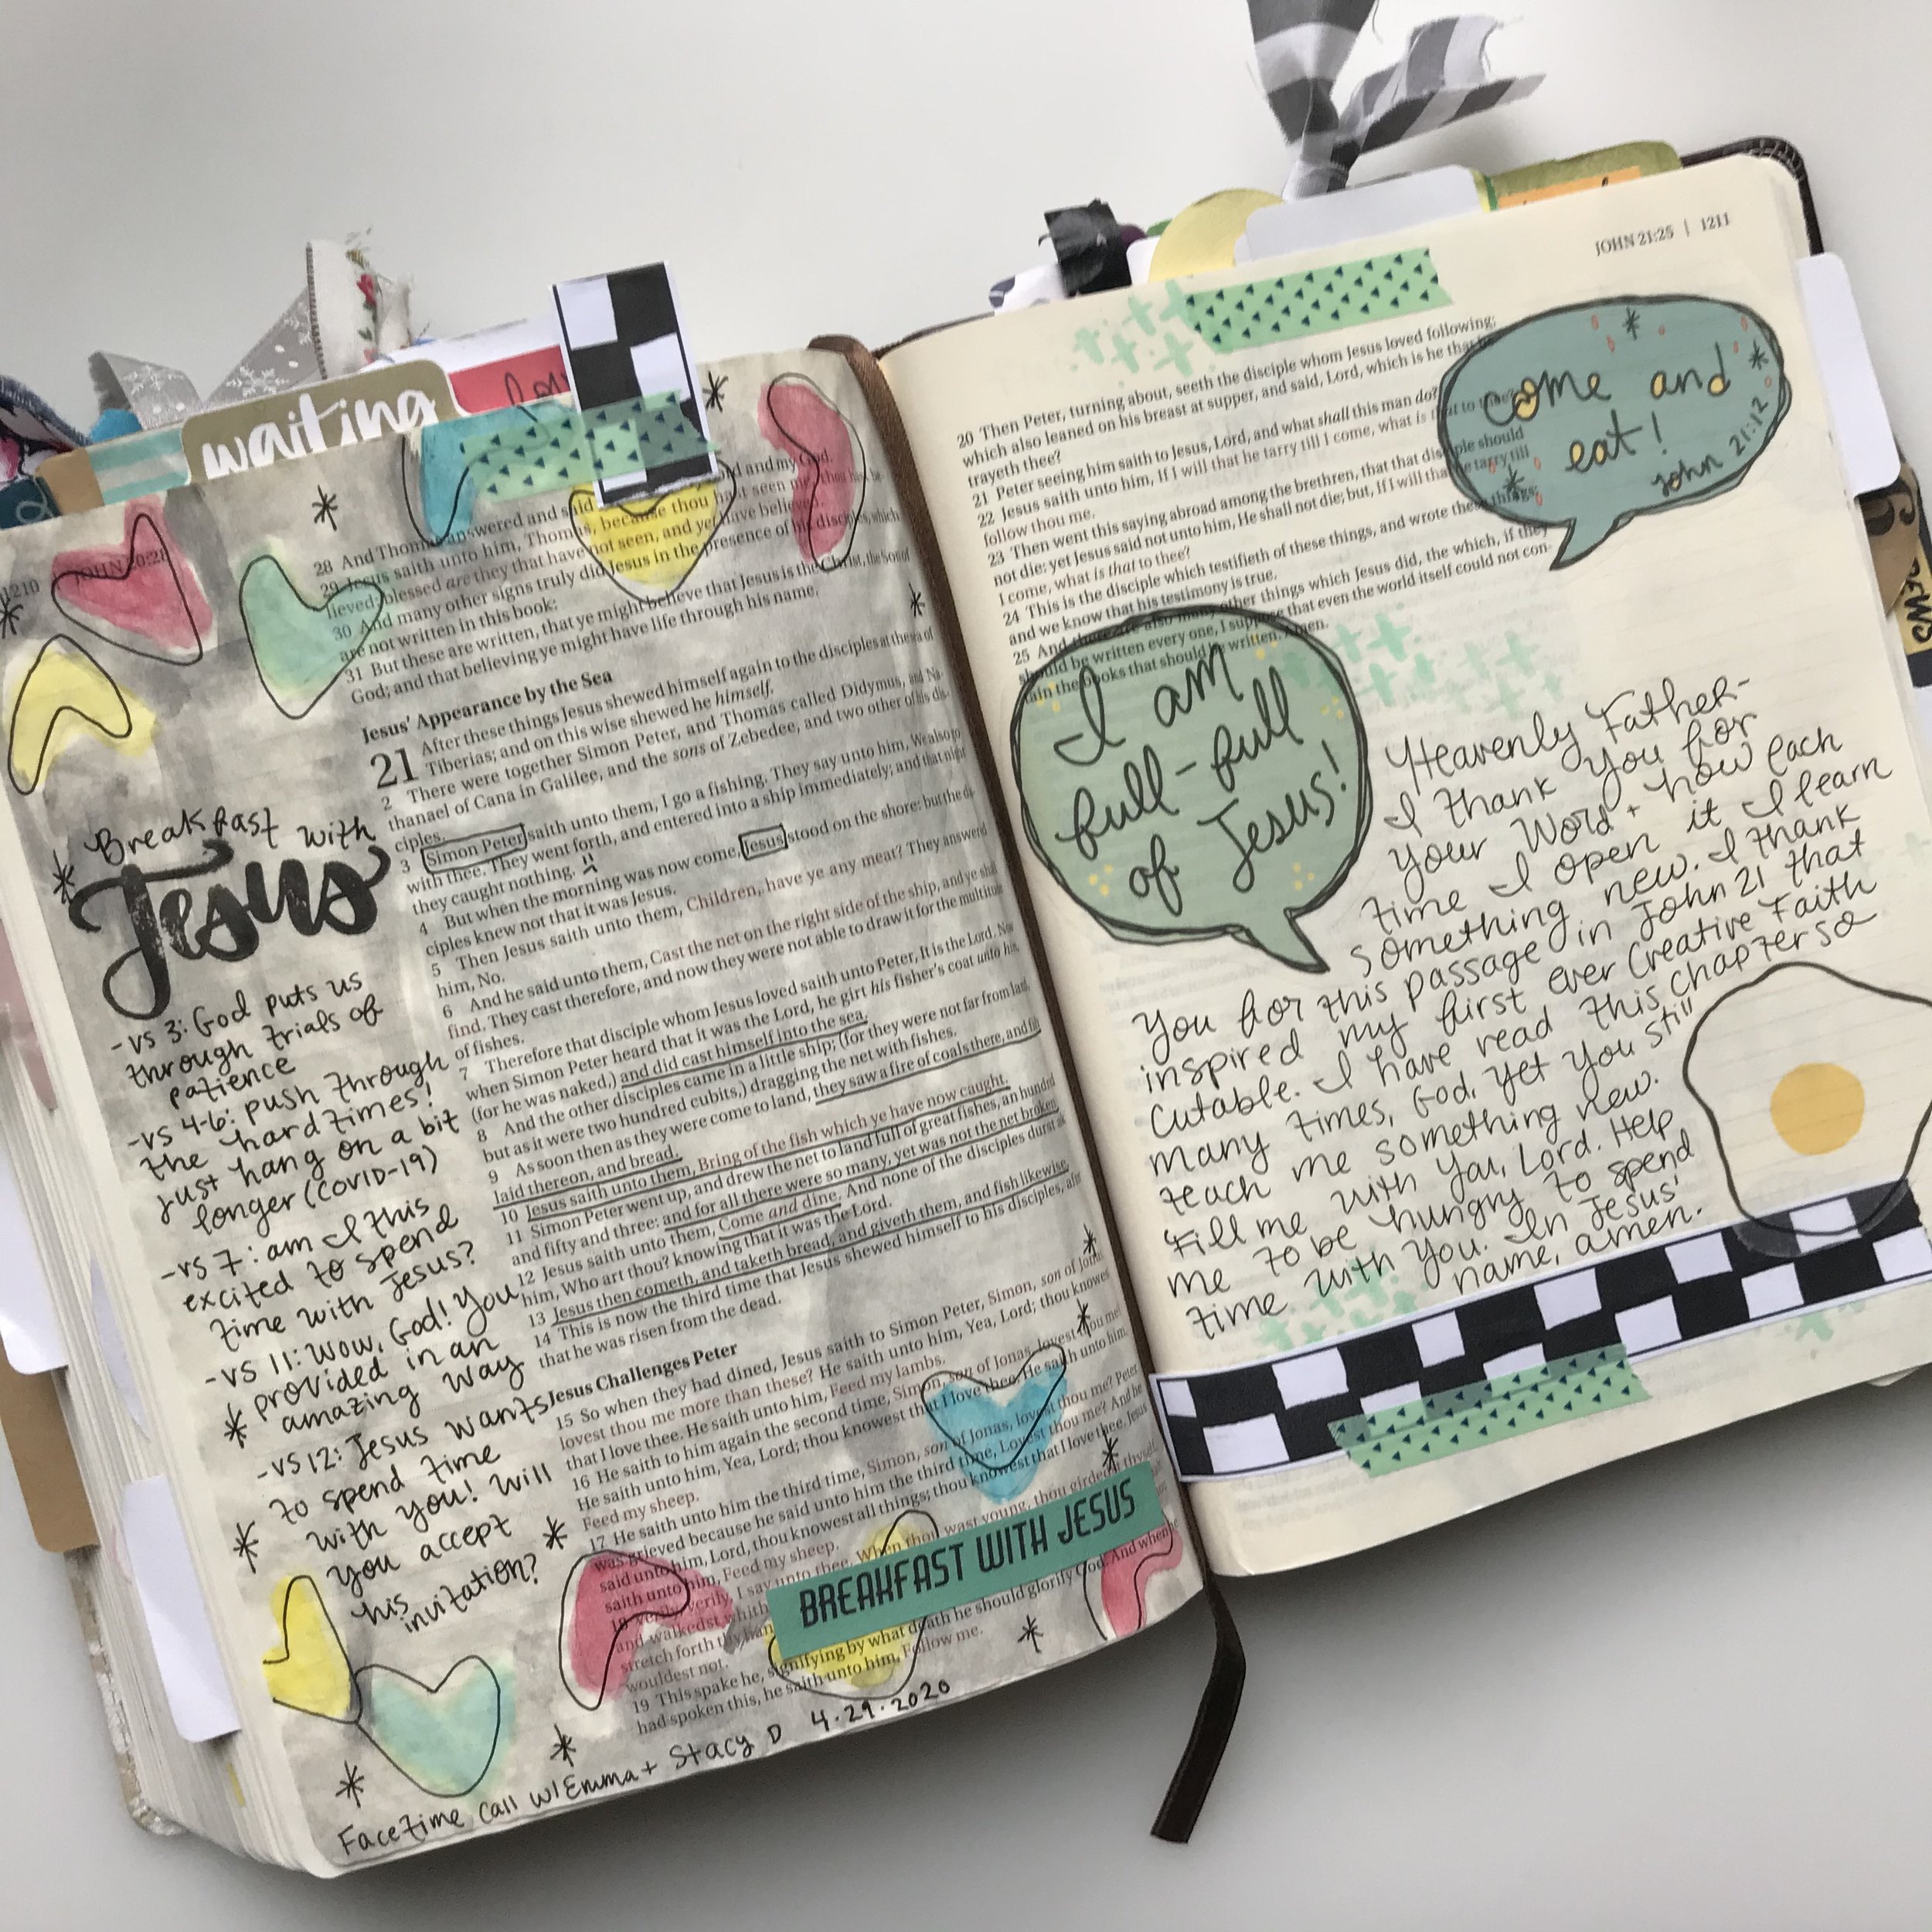 waiting
1210
JOHN 20:28
28 And Thomas answered and said and my God.
29 Jesus saith unto him, Thomas, because thou hast seen me,
lieved: blessed are they that have not seen, and yet have believed
30 And many other signs truly did Jesus in the presence of his disciples, which
are not written in this book:
31 But these are written, that ye might believe that Jesus is the Christ, the Son of
God; and that believing ye might have life through his name.
Jesus' Appearance by the Sea
21 After these things Jesus shewed himself again to the disciples at the sea of
Tiberias; and on this wise shewed he himself.
2 There were together Simon Peter, and Thomas called Didymus, and Na-
thanael of Cana in Galilee, and the sons of Zebedee, and two other of his dis-
ciples.
3 Simon Peter saith unto them, I go a fishing. They say unto him, We also go
with thee. They went forth, and entered into a ship immediately; and that night
they caught nothing.
4 But when the morning was now come, Jesus stood on the shore: but the di-
ciples knew not that it was Jesus.
5 Then Jesus saith unto them, Children, have ye any meat? They answered
him, No.
6 And he said unto them, Cast the net on the right side of the ship, and ye shall
find. They cast therefore, and now they were not able to draw it for the multitude
of fishes.
7 Therefore that disciple whom Jesus loved saith unto Peter, It is the Lord. Now
when Simon Peter heard that it was the Lord, he girt his fisher's coat unto him,
(for he was naked,) and did cast himself into the sea.
8 And the other disciples came in a little ship; (for they were not far from land,
but as it were two hundred cubits,) dragging the net with fishes.
9 As soon then as they were come to land, they saw a fire of coals there, and fish
laid thereon, and bread.
10 Jesus saith unto them, Bring of the fish which ye have now caught.
11 Simon Peter went up, and drew the net to land full of great fishes, an hundred
and fifty and three: and for all there were so many, yet was not the net broken.
12 Jesus saith unto them, Come and dine. And none of the disciples durst ask
him, Who art thou? knowing that it was the Lord.
13 Jesus then cometh, and taketh bread, and giveth them, and fish likewise.
14 This is now the third time that Jesus shewed himself to his disciples, after
that he was risen from the dead.
Jesus Challenges Peter
15 So when they had dined, Jesus saith to Simon Peter, Simon, son of Jonas,
lovest thou me more than these? He saith unto him, Yea, Lord; thou knowest
that I love thee. He saith unto him, Feed my lambs.
16 He saith to him again the second time, Simon, son of Jonas, lovest thou me?
He saith unto him, Yea, Lord; thou knowest that I love thee. He saith unto him,
Feed my sheep.
17 He saith unto him the third time, Simon, son of Jonas, lovest thou me? Peter
was grieved because he said unto him the third time, Lovest thou me? And he
said unto him, Lord, thou knowest all things; thou knowest that I love thee. Jesus
saith unto him, Feed my sheep.
18 Verily, verily, I say unto thee, When thou wast young, thou girdedst thyself,
and walkedst whith
stretch forth thy han And when
wouldest not.
19 This spake he, signifying by what death he should glorify God. And when he
had spoken this, he saith unto him, Follow me.
BREAKFAST WITH JESUS
Breakfast with
Jesus
-vs 3: God puts us
through trials of
patience
-vs 4-6: push through
the hard times!
Just hang on a bit
longer (COVID-19)
-vs 7: am I this
excited to spend
time with Jesus?
-vs 11: Wow, God! You
provided in an
amazing way
-vs 12: Jesus wants
to spend time
with you! Will
you accept
his
invitation?
FaceTime call w/ Emma + Stacy D 4.29.2020
JOHN 21:25 | 1211
20 Then Peter, turning about, seeth the disciple whom Jesus loved following;
which also leaned on his breast at supper, and said, Lord, which is he that be-
trayeth thee?
21 Peter seeing him saith to Jesus, Lord, and what shall this man do?
22 Jesus saith unto him, If I will that he tarry till I come, what is that to thee?
follow thou me.
23 Then went this saying abroad among the brethren, that that disciple should
not die: yet Jesus said not unto him, He shall not die; but, If I will that he tarry till
I come, what is that to thee?
24 This is the disciple which testifieth of these things, and wrote these things:
and we know that his testimony is true.
25 And there are also many other things which Jesus did, the which, if they
should be written every one, I suppose that even the world itself could not con-
tain the books that should be written. Amen.
come and
eat!
John 21:12
I am
full-full
of Jesus!
Heavenly Father-
I thank you for
your Word + how each
time I open it I learn
something new. I thank
You for this passage in John 21 that
inspired my first ever Creative Faith
Cutable. I have read this chapter so
many times, God, yet you still
teach me something new.
Fill me with You, Lord. Help
me to be hungry to spend
time with You. In Jesus'
name, amen.